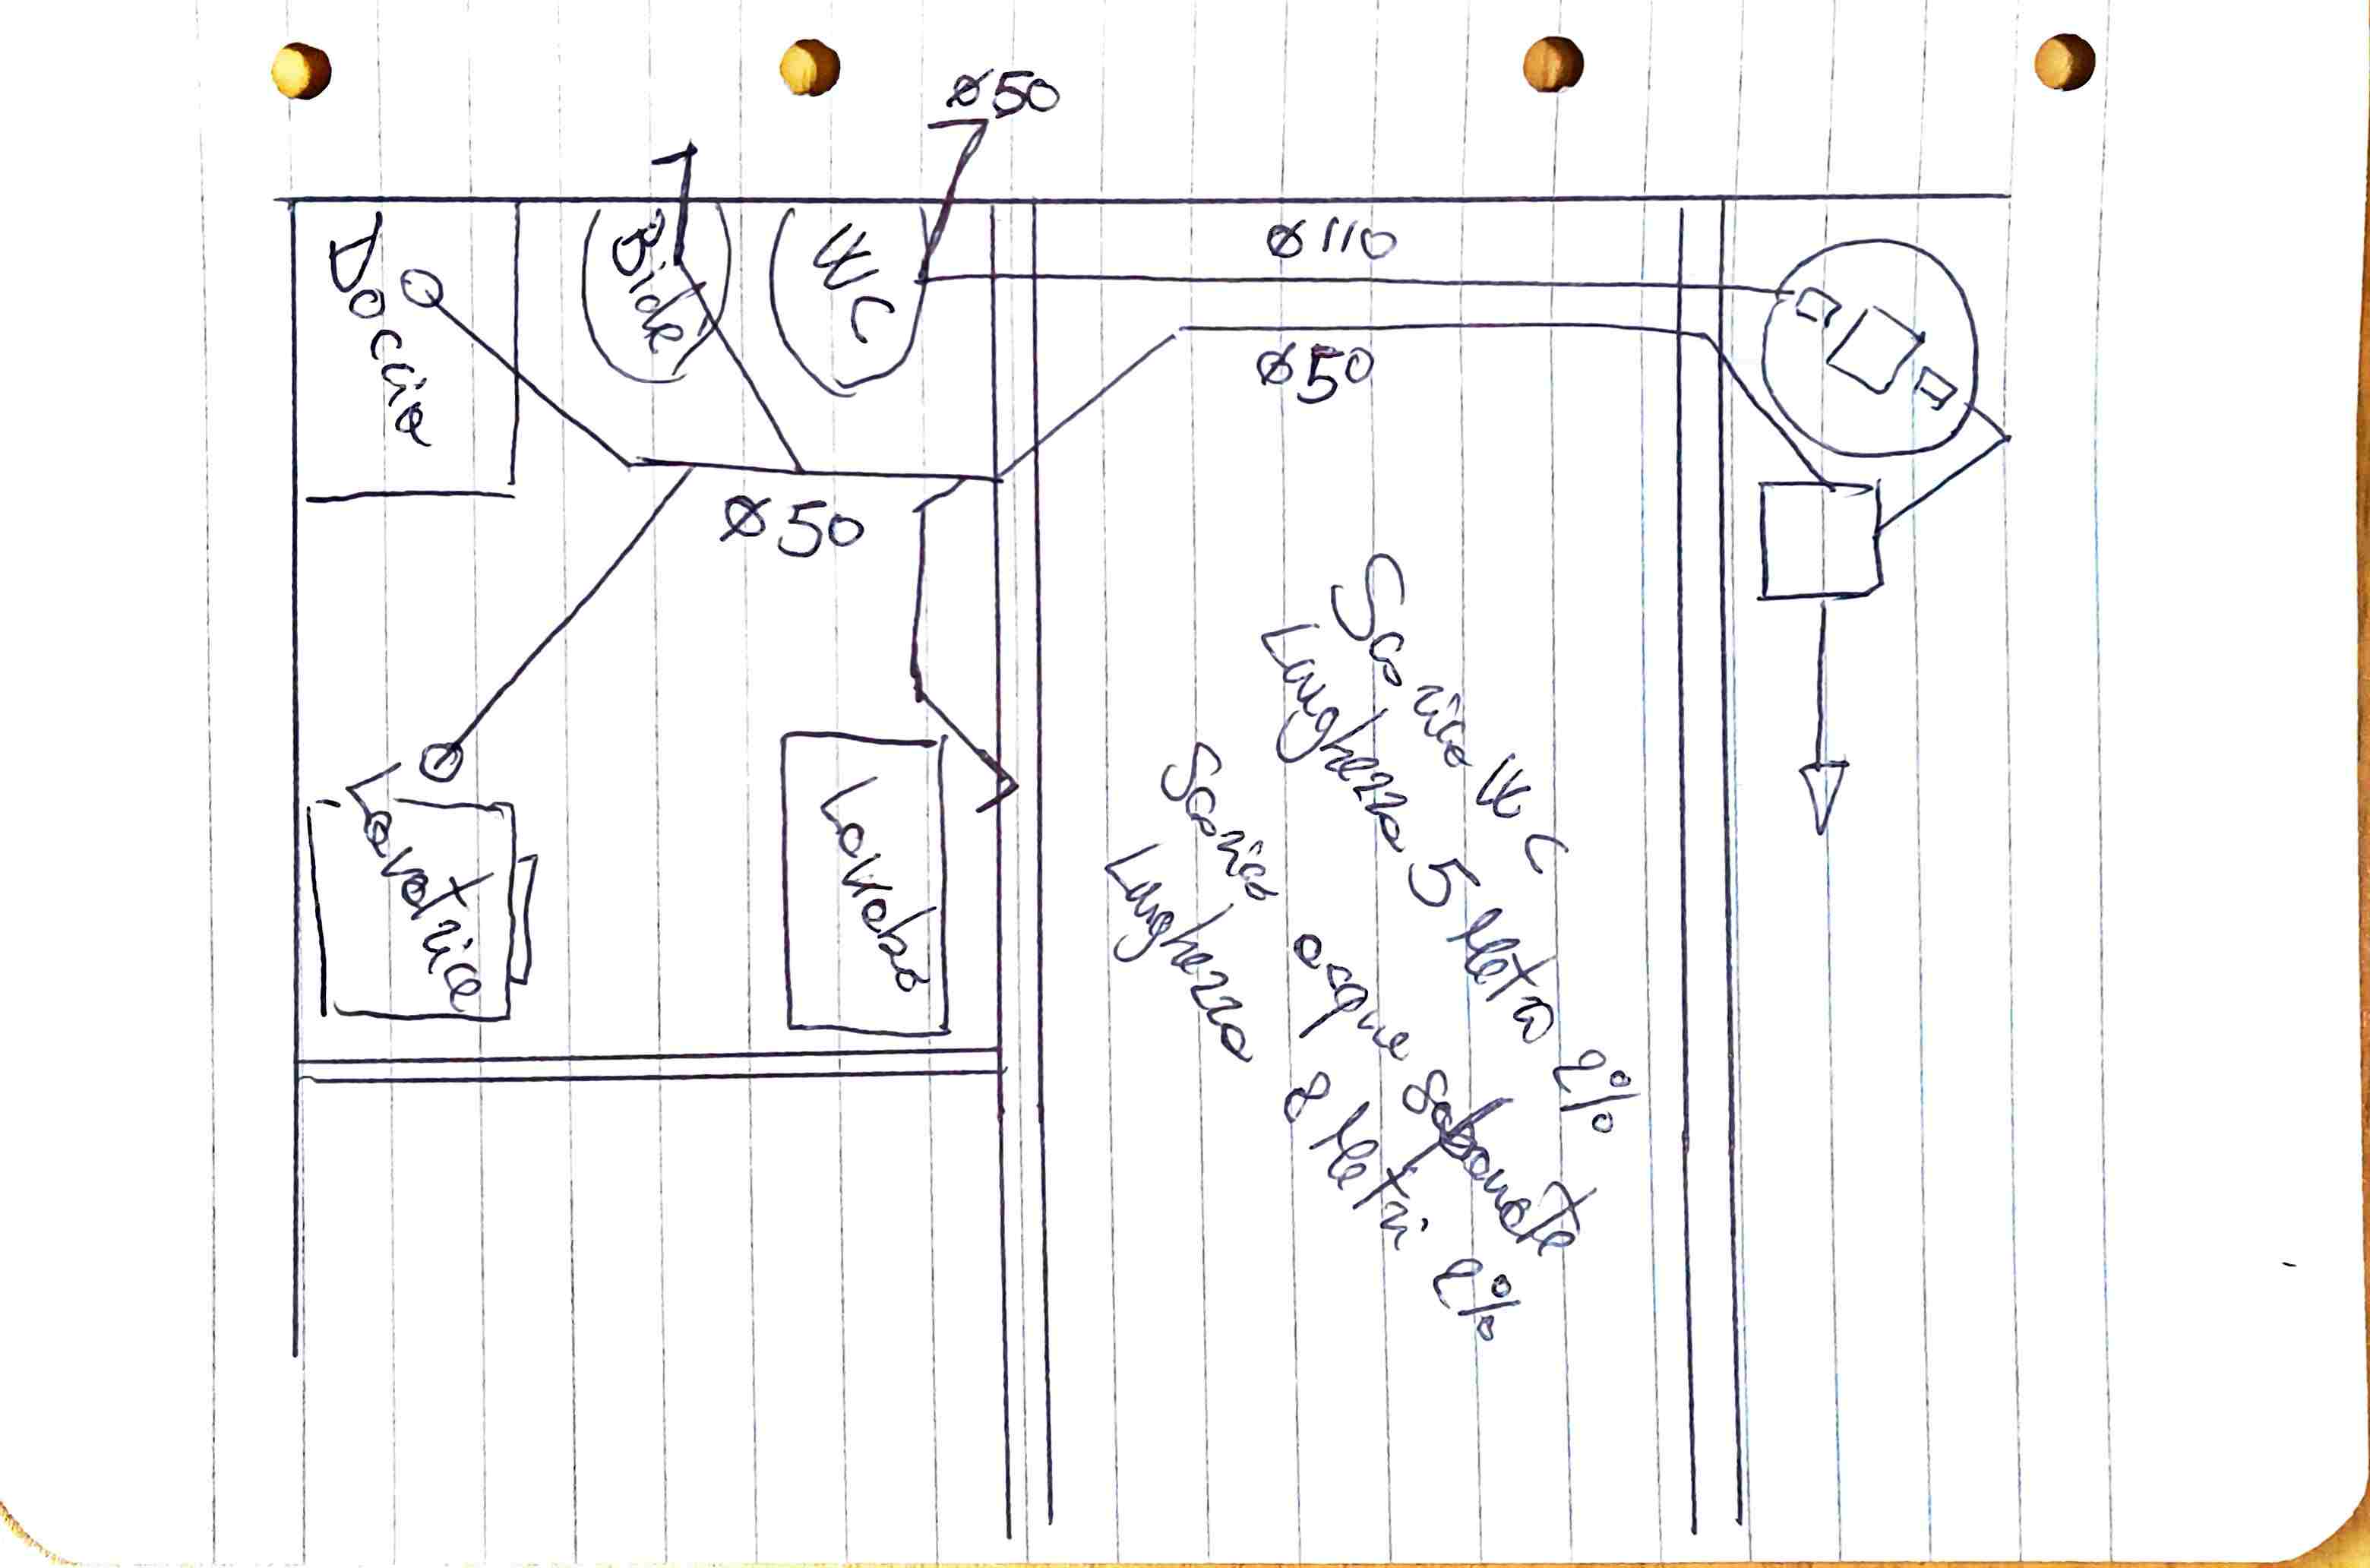 ø50
Doccia
Bidè
WC
ø110
ø50
ø50
Lavatrice
Lavabo
Scarico WC
Lunghezza 5 Metri 2%
Scarico acque saponate
Lunghezza 8 Metri 2%